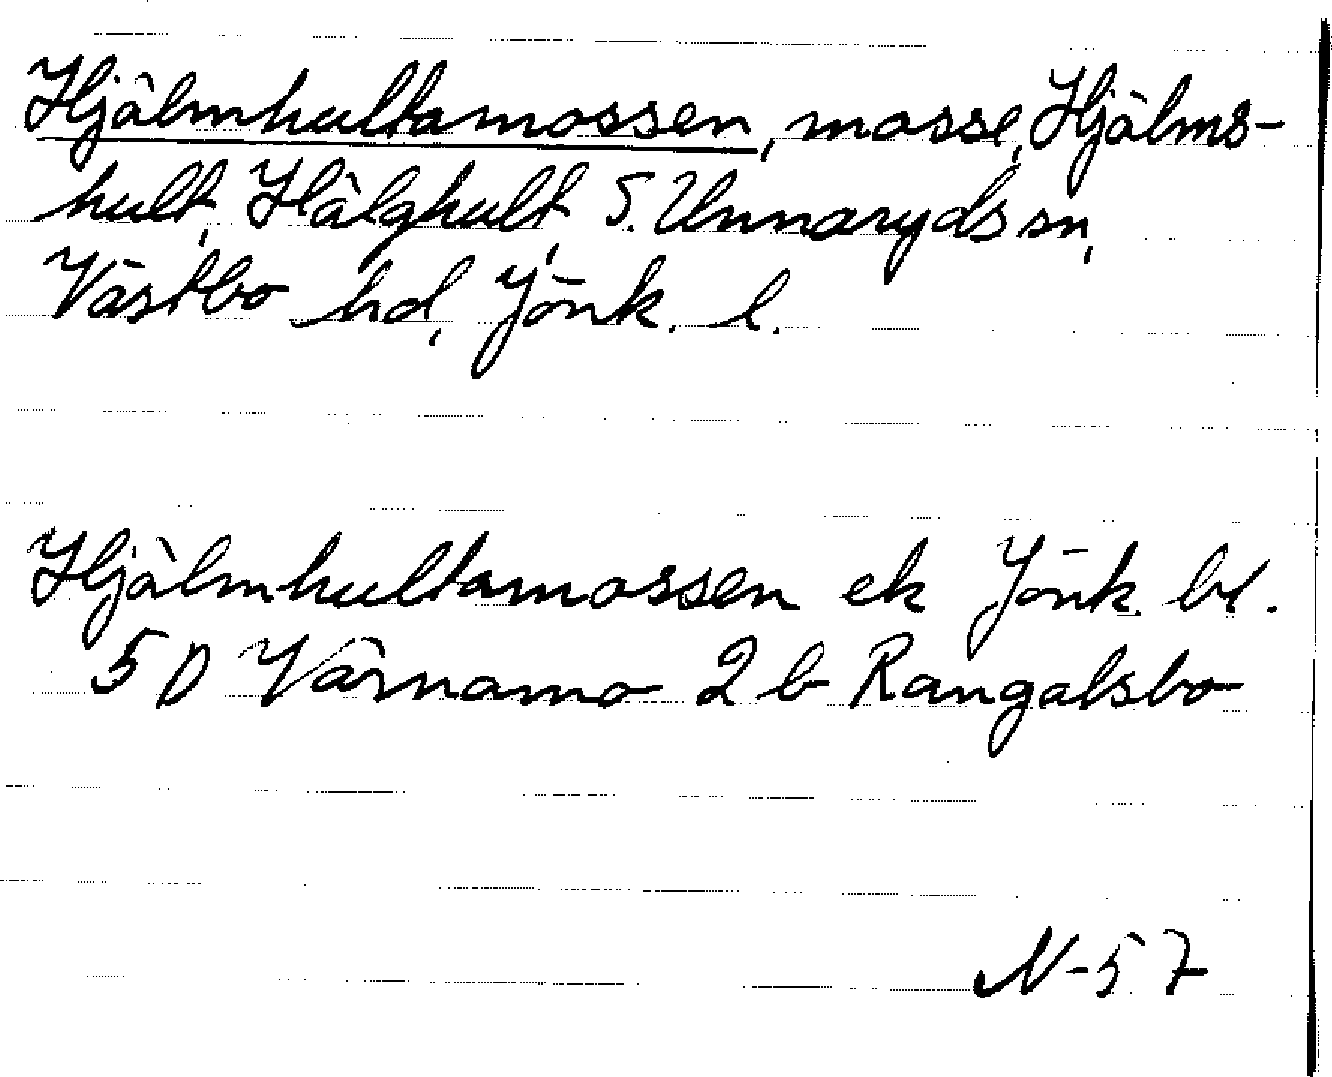 Hjälmhultamossen, mosse, Hjälms-
hult, Hälghult, S. Unnaryds sn,
Västbo hd, Jönk. l.
Hjälmhultamossen ek Jönk. bl.
5 D Värnamo 2 b Rangalsbo
N-57